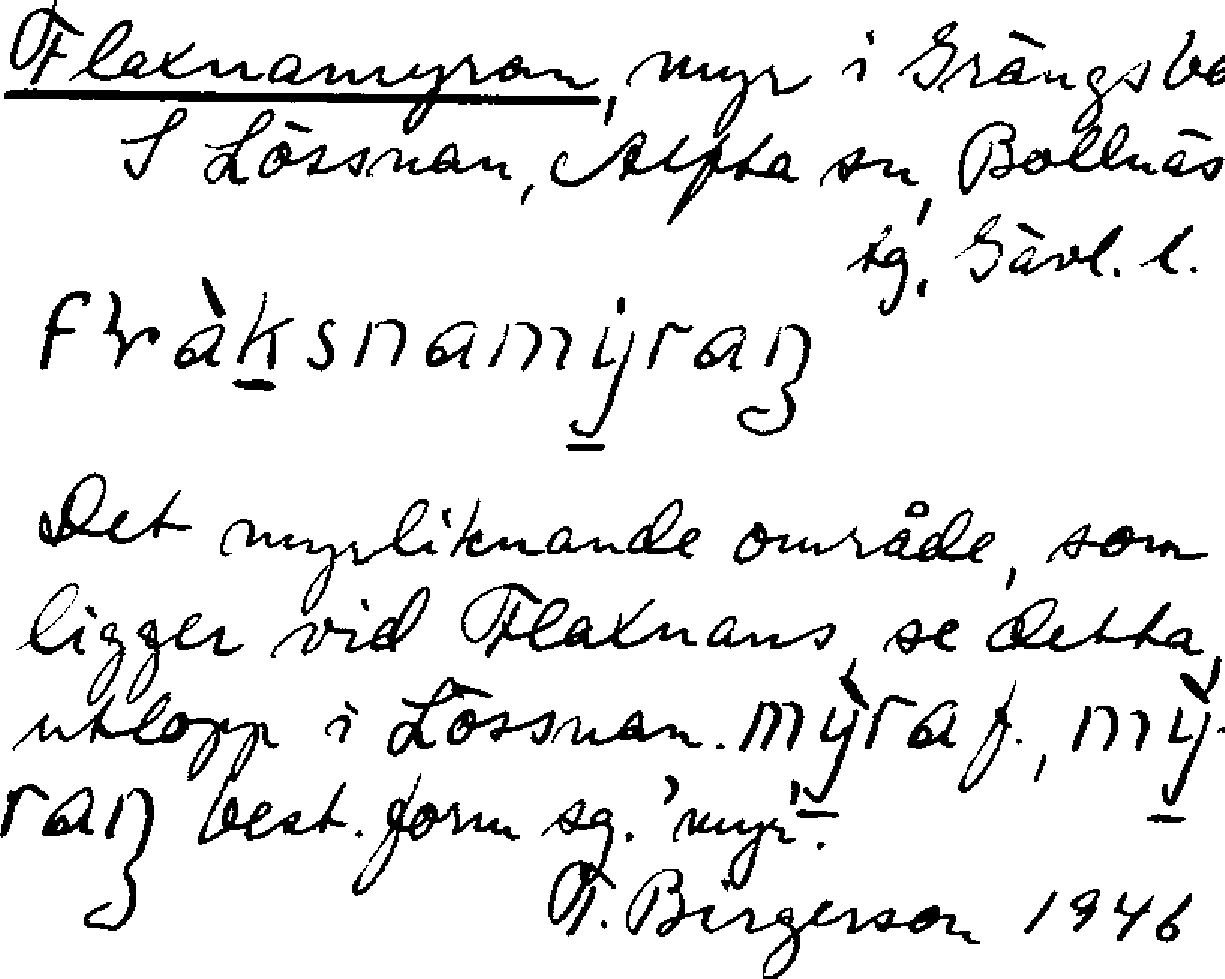 Flaxnamyran, myr i Grängsbo
S Lössnan, Alfta sn, Bollnäs
tg, Gävl. l.
Det myrliknande område, som
ligger vid Flaxnans, se detta,
utlopp i Lössnan. mỳra f., mỳ-
raꞃ best. form sg. 'myr'.
F. Birgerson 1946